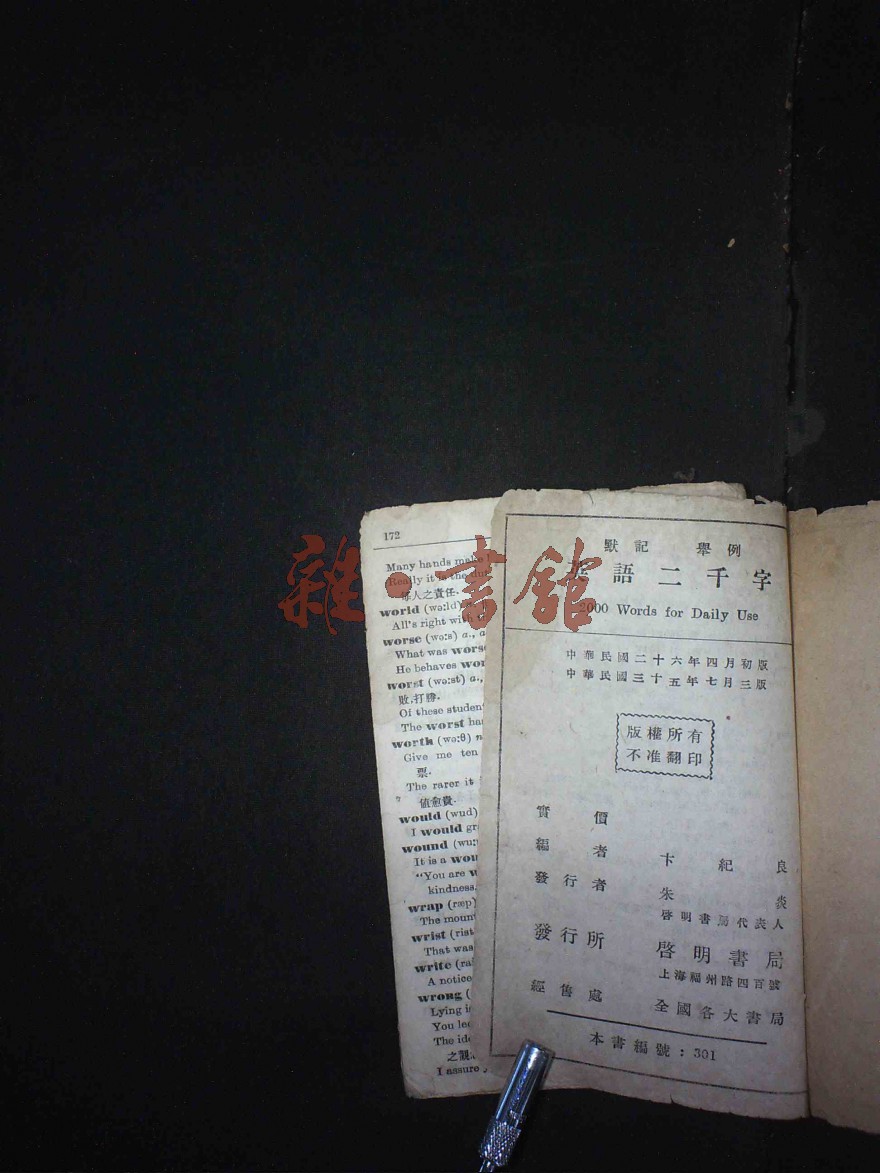 172
Many hands make
Really it is the dut
每人之責任.
world (wə:ld) n.
All's right with
worse (wə:s) a., a
What was worse
He behaves wor
worst (wə:st) a.,
敗,打勝.
Of these student
The worst ha
worth (wə:θ) n
Give me ten
票.
The rarer it
值愈貴.
would (wud)
I would gr
wound (wu:
It is a wou
"You are w
kindness.
wrap (ræp)
The moun
wrist (rist
That was
write (rai
A notice
wrong (
Lying i
You lea
The ide
之觀
I assure y
默記 舉例
英語二千字
2000 Words for Daily Use
中華民國二十六年四月初版
中華民國三十五年七月三版
版權所有
不准翻印
實價
編者 卞紀良
發行者 朱焱
啓明書局代表人
發行所 啓明書局
上海福州路四百號
經售處 全國各大書局
本書編號：301
雜·書館